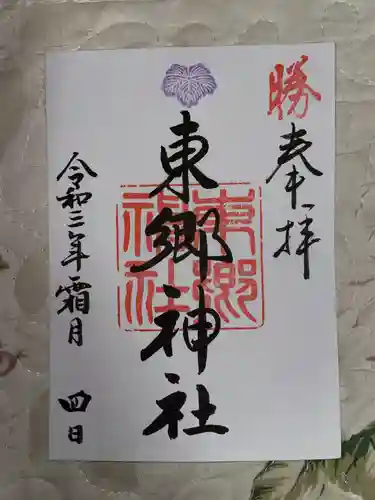 勝
奉拝
東郷神社
東郷神社
令和二年霜月 四日